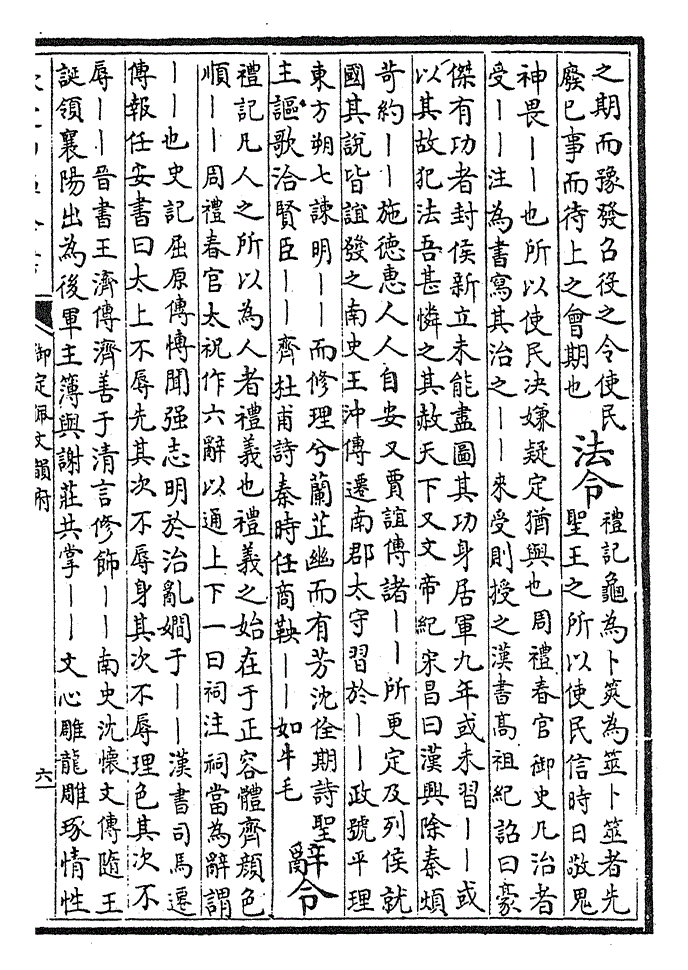 之期而豫發召役之令使民
廢已事而待上之會期也
法令
禮記龜為卜筴為筮卜筮者先
聖王之所以使民信時日敬鬼
神畏——也所以使民决嫌疑定猶與也周禮春官御史凡治者
受——注為書寫其治之——來受則授之漢書高祖紀詔曰豪
傑有功者封侯新立未能盡圖其功身居軍九年或未習——或
以其故犯法吾甚憐之其赦天下又文帝紀宋昌曰漢興除秦煩
苛約——施徳惠人人自安又賈誼傳諸——所更定及列侯就
國其說皆誼發之南史王沖傳遷南郡太守習於——政號平理
東方朔七諫明——而修理兮蘭芷幽而有芳沈佺期詩聖
主謳歌洽賢臣——齊杜甫詩秦時任商鞅——如牛毛
辭令
禮記凡人之所以為人者禮義也禮義之始在于正容體齊顔色
順——周禮春官太祝作六辭以通上下一曰祠注祠當為辭謂
——也史記屈原傳慱聞强志明於治亂嫺于——漢書司馬遷
傳報任安書曰太上不辱先其次不辱身其次不辱理色其次不
辱——晉書王濟傳濟善于清言修飾——南史沈懷文傳隨王
誕領襄陽出為後軍主簿與謝莊共掌——文心雕龍雕琢情性
御定佩文韻府
六